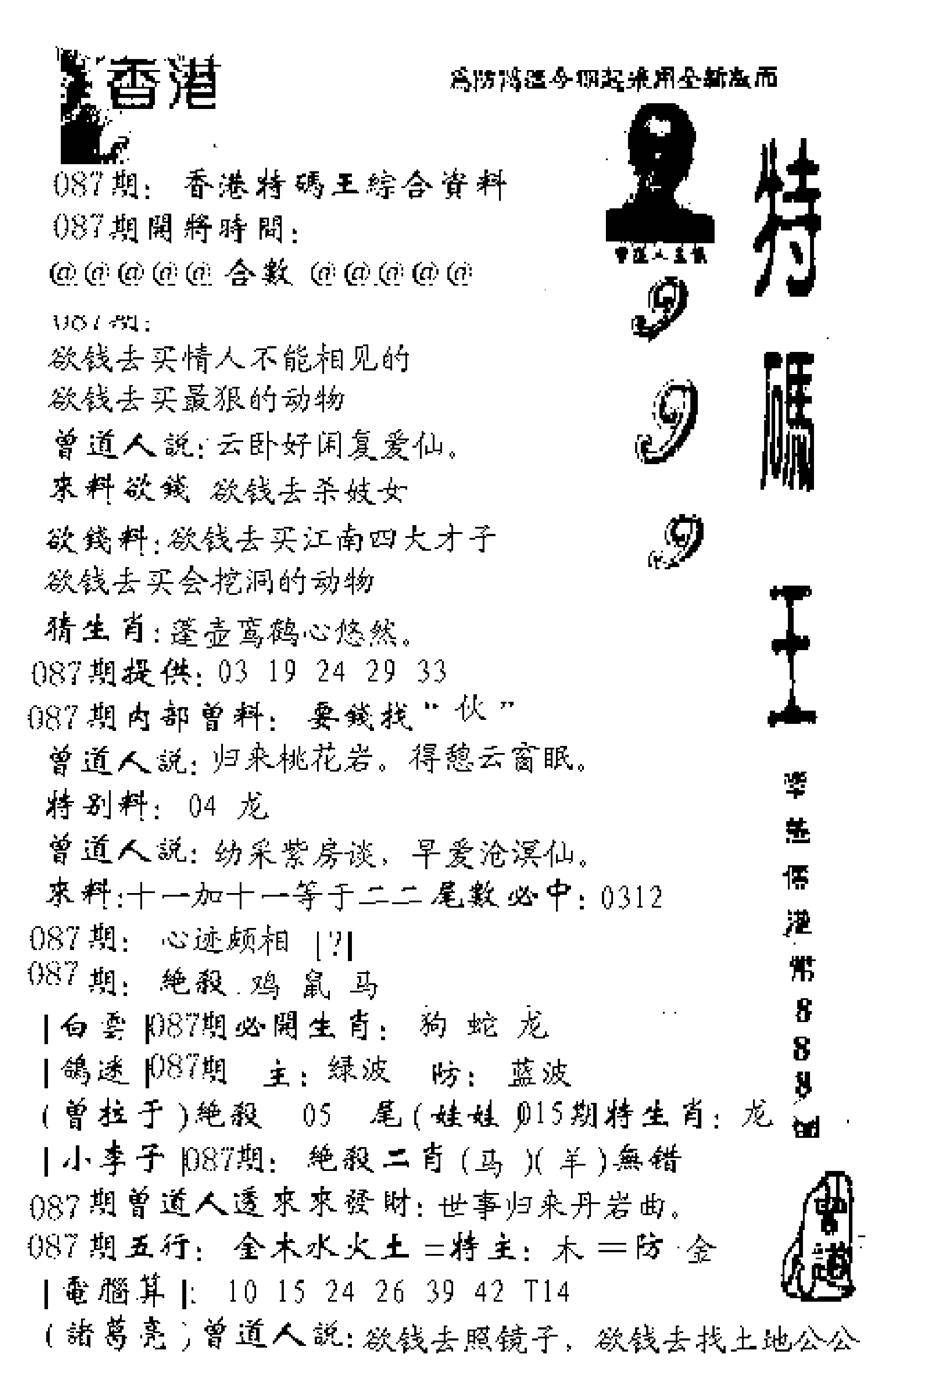 香港
為防濫今期起採用全新版面
087期: 香港特碼王綜合資料
087期開將時間:
@@@@@合數@@@@@
087期:
欲钱去买情人不能相见的
欲钱去买最狠的动物
曾道人説:云卧好闲复爱仙。
來料欲錢 欲钱去杀妓女
欲錢料:欲钱去买江南四大才子
欲钱去买会挖洞的动物
猜生肖:蓬壶鸾鹤心悠然。
087期提供: 03 19 24 29 33
087期内部曾料: 要錢找“伙”
曾道人説: 归来桃花岩。得憩云窗眠。
特别料: 04 龙
曾道人説: 幼采紫房谈，早爱沧溟仙。
來料:十一加十一等于二二尾數必中: 0312
087期: 心迹颇相 [?]
087期: 絶殺 鸡 鼠 马
|白雲|087期必開生肖: 狗 蛇 龙
|鴿迷|087期 主: 绿波 防: 蓝波
(曾拉于)絶殺 05 尾(娃娃)015期特生肖: 龙
|小李子|087期: 絶殺二肖(马)(羊)無錯
087期曾道人透來來發財:世事归来丹岩曲。
087期五行: 金木水火土=特主: 木=防 金
|電腦算|: 10 15 24 26 39 42 T14
(諸葛亮)曾道人説:欲钱去照镜子，欲钱去找土地公公
曾道人主
9
9
9
特
碼
王
港
幣
8
8
8
曾
道